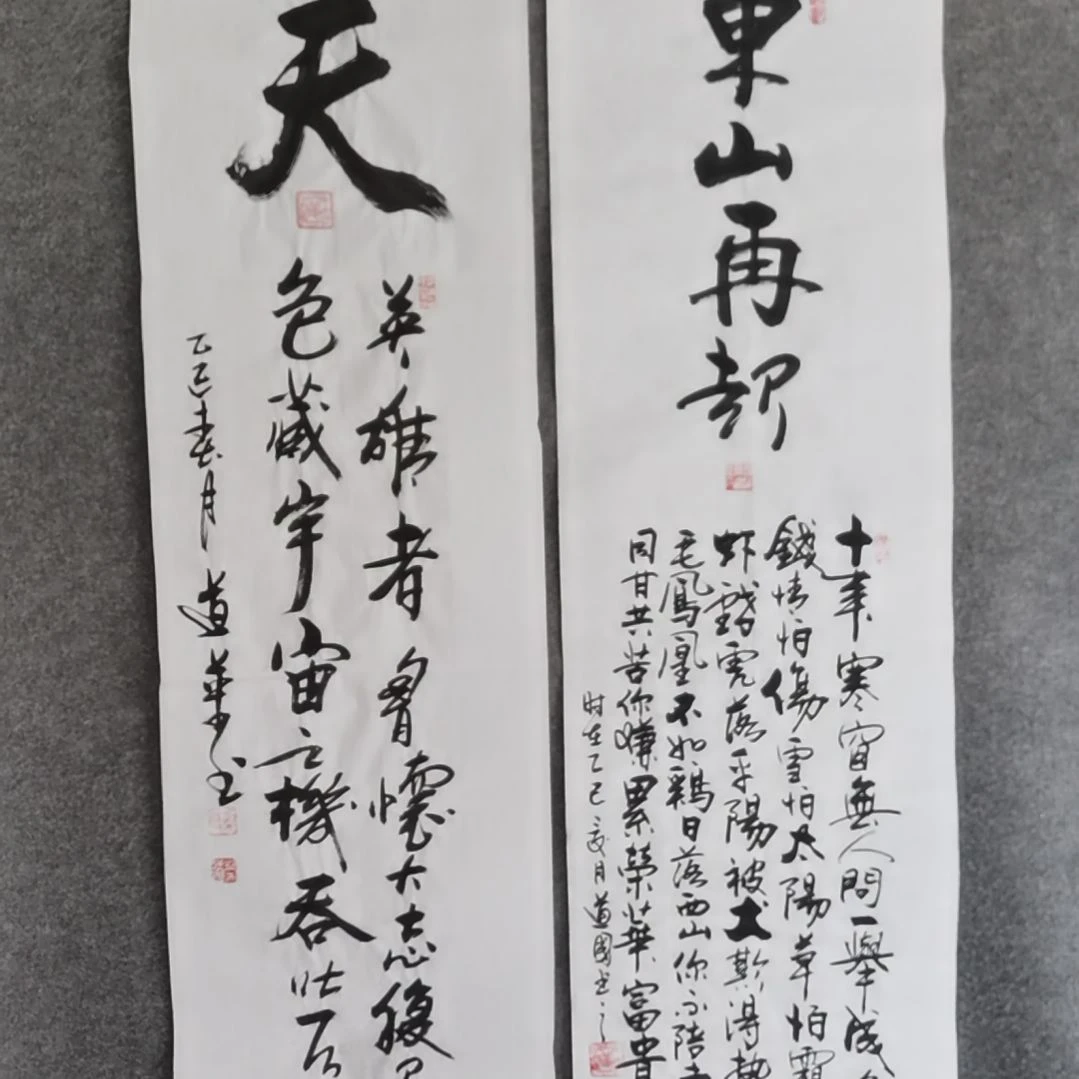 東山再起
十年寒窗無人問一舉成
錢情怕傷雪怕太陽草怕霜
虾戲虎落平陽被犬欺得勢
毛鳳凰不如鷄日落西山你不陪
同甘共苦你嫌累榮華富貴
时在乙巳夏月道國书之
天
英雄者胸懷大志腹
包藏宇宙之機吞吐
乙巳春月道華书